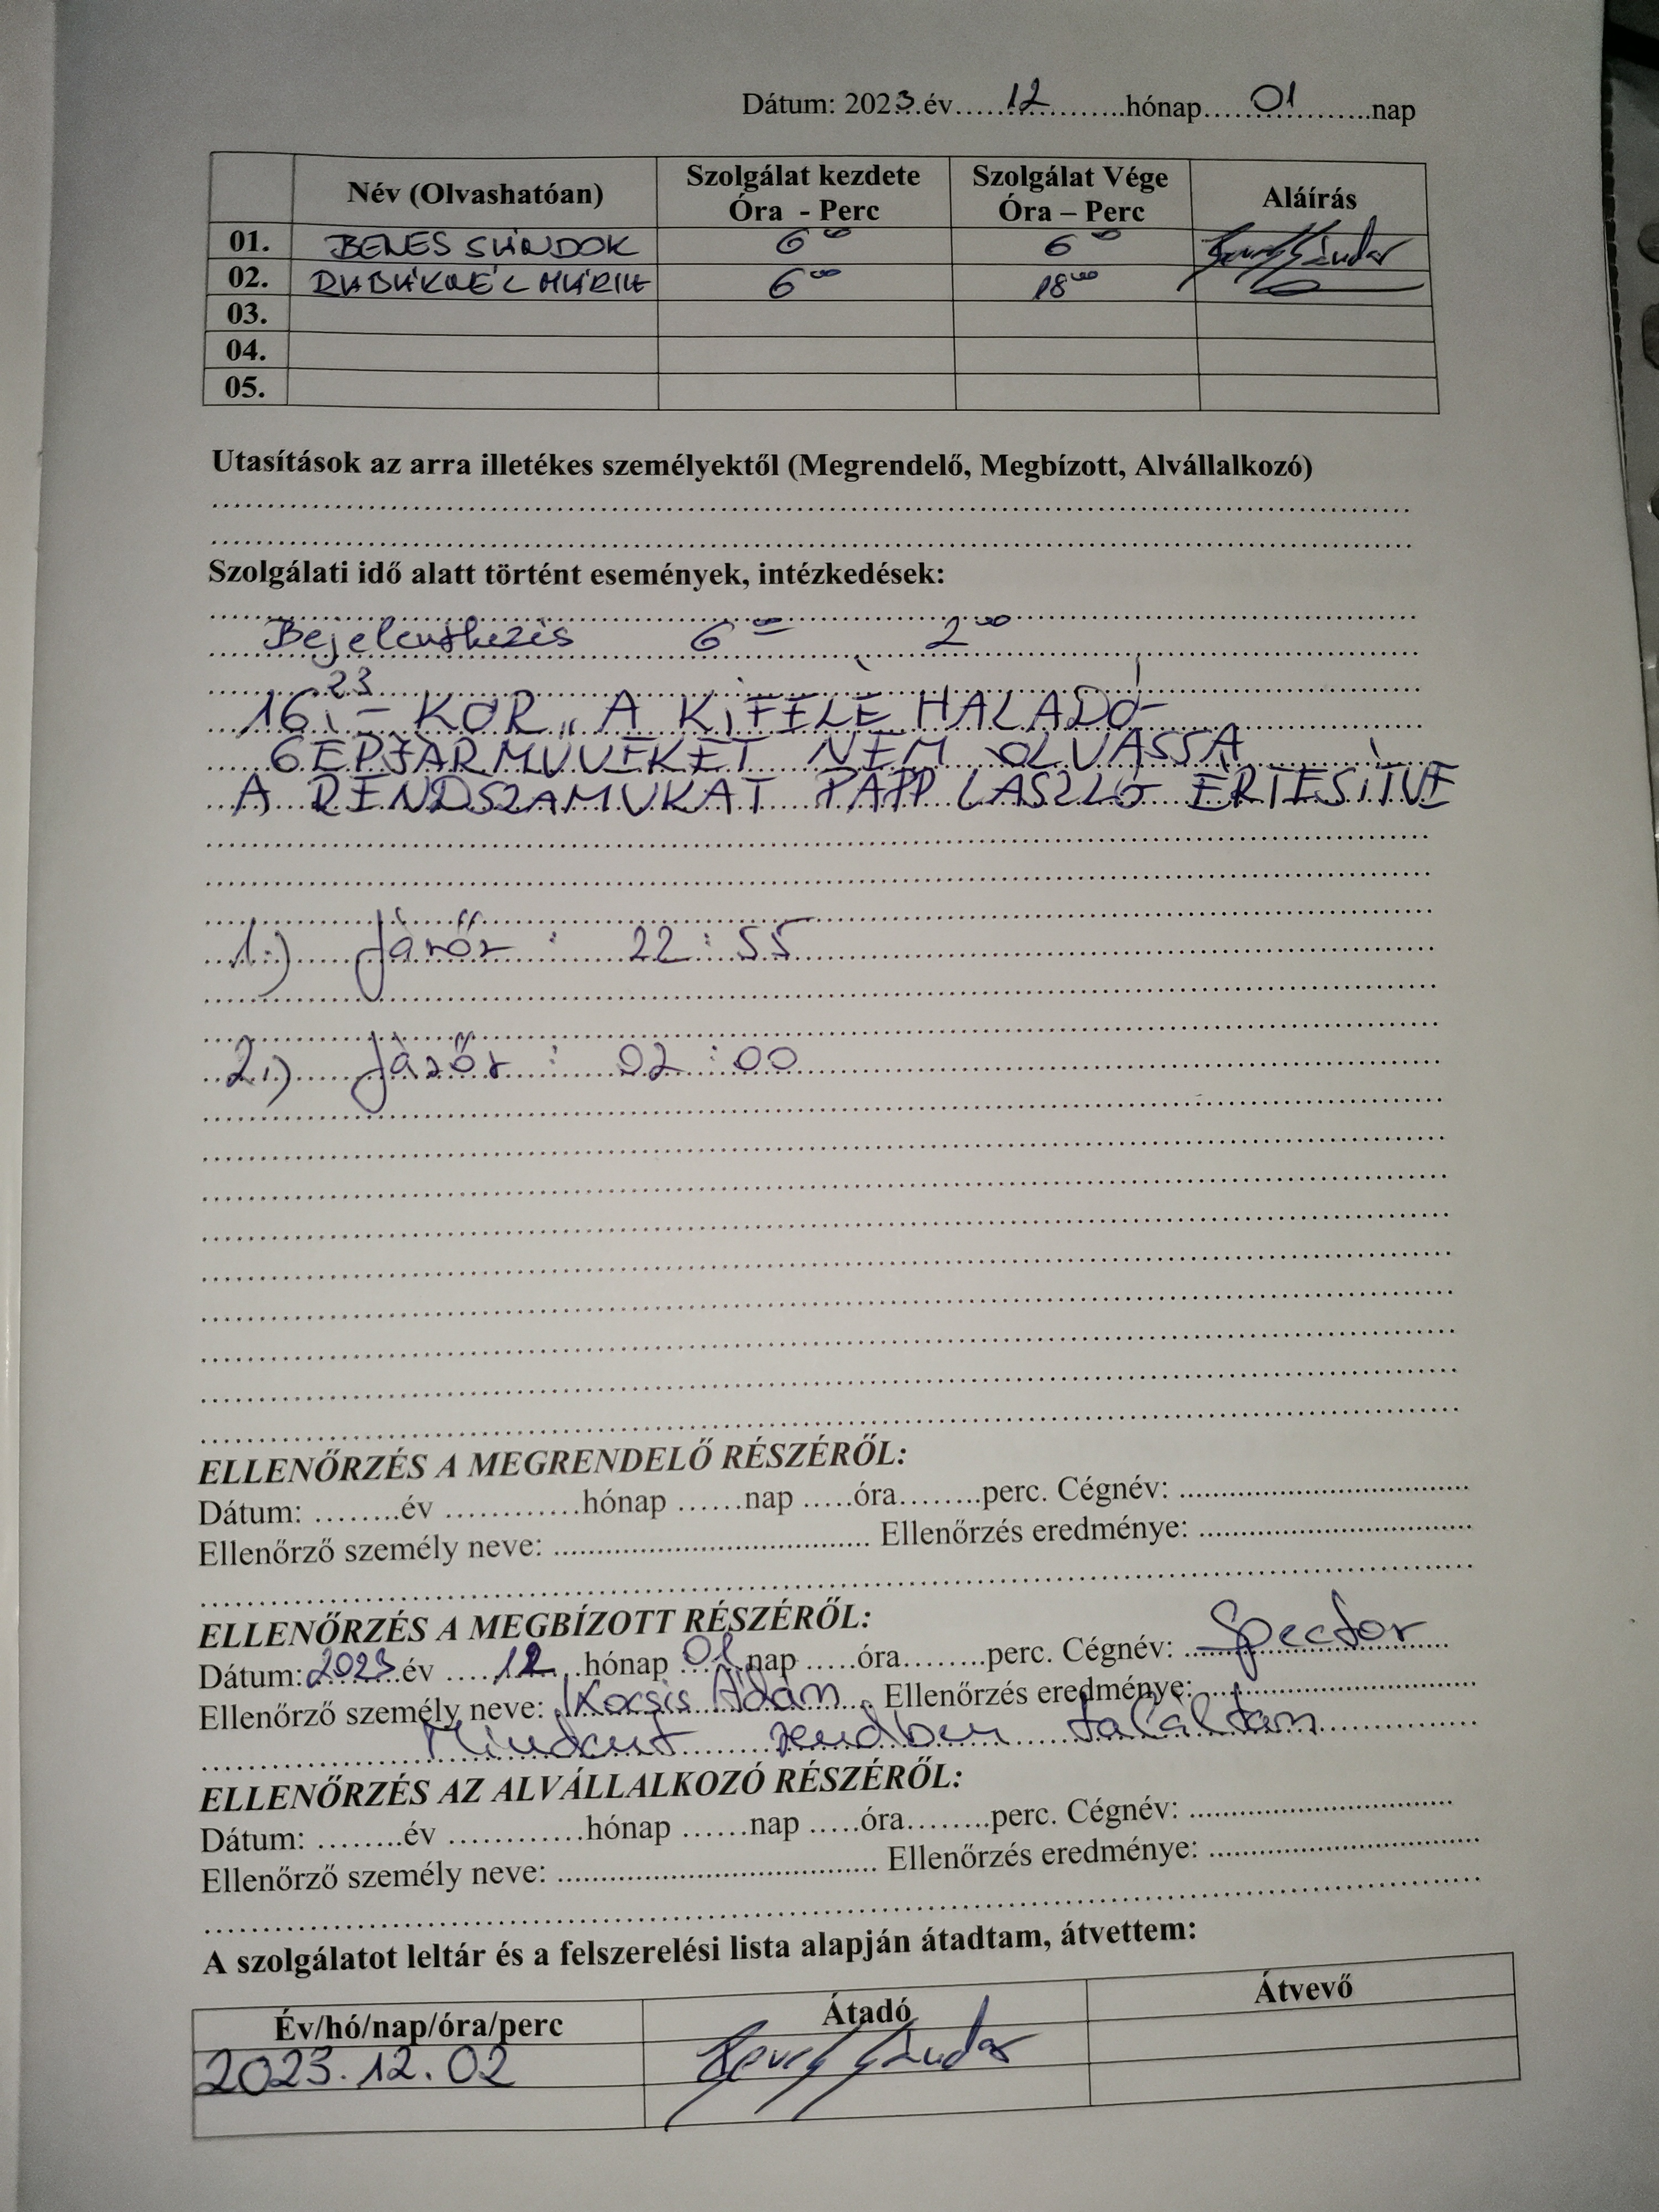 Dátum: 2023.év.....12..........hónap....01........nap
Név (Olvashatóan) Szolgálat kezdete Óra - Perc Szolgálat Vége Óra – Perc Aláírás
01. BENES SÁNDOR 6 00 6 00
02. MÁRIA 6 00 18 00
03.
04.
05.
Utasítások az arra illetékes személyektől (Megrendelő, Megbízott, Alvállalkozó)
Szolgálati idő alatt történt események, intézkedések:
Bejelentkezés 6 00 2 00
16 23 - KOR A KIFELÉ HALADÓ
GÉPJÁRMŰVEKET NEM OLVASSA
A RENDSZÁMUKAT PAPP LÁSZLÓ ÉRTESÍTVE
1.) Járőr : 22 : 55
2.) Járőr : 02 : 00
ELLENŐRZÉS A MEGRENDELŐ RÉSZÉRŐL:
Dátum: ........év ............hónap ......nap .....óra........perc. Cégnév: ..............................
Ellenőrző személy neve: .............................. Ellenőrzés eredménye: ..............................
ELLENŐRZÉS A MEGBÍZOTT RÉSZÉRŐL:
Dátum: 2023.év .....12...hónap 01.nap .....óra........perc. Cégnév: Spector
Ellenőrző személy neve: Kocsis Ádám Ellenőrzés eredménye:
Mindent rendben találtam
ELLENŐRZÉS AZ ALVÁLLALKOZÓ RÉSZÉRŐL:
Dátum: ........év ............hónap ......nap .....óra........perc. Cégnév: ..............................
Ellenőrző személy neve: .............................. Ellenőrzés eredménye: ..............................
A szolgálatot leltár és a felszerelési lista alapján átadtam, átvettem:
Év/hó/nap/óra/perc Átadó Átvevő
2023.12.02